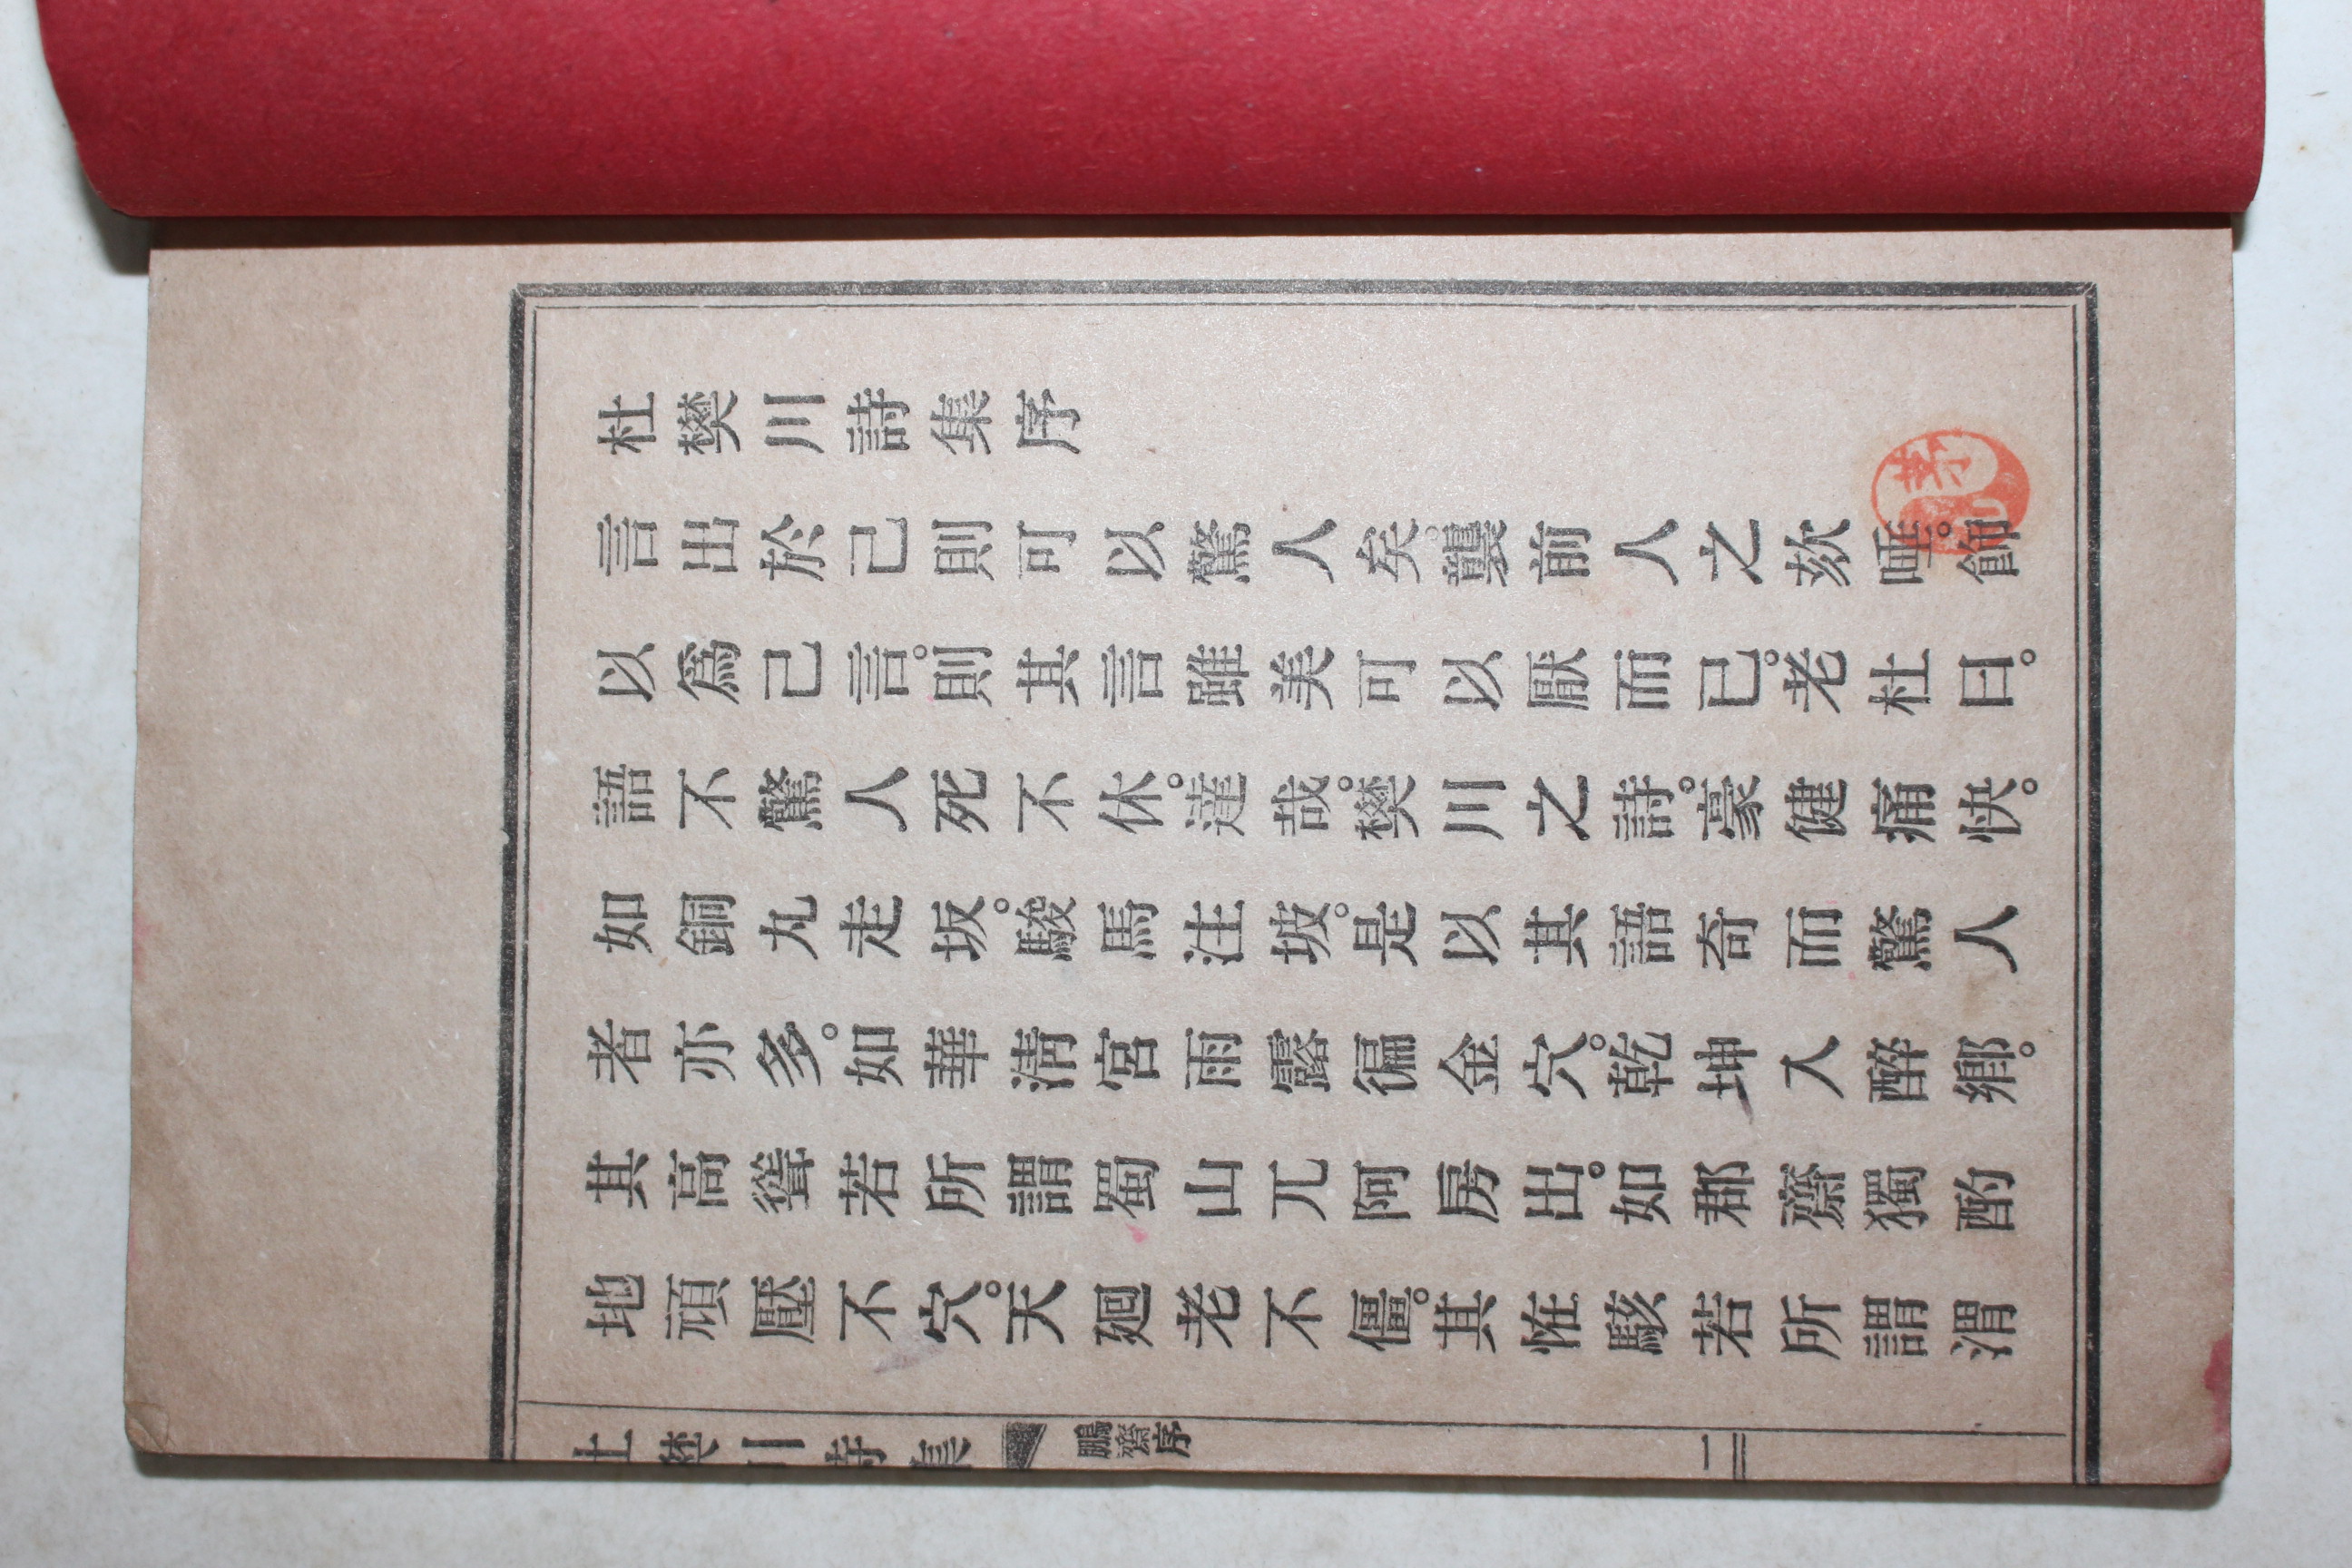 杜樊川詩集序
言出於己則可以驚人矣。襲前人之欬唾。飾
以爲己言。則其言雖美可以厭而已。老杜曰。
語不驚人死不休。達哉。樊川之詩。豪健痛快。
如銅丸走坂。駿馬注坡。是以其語奇而驚人
者亦多。如華淸宮雨露徧金穴。乾坤入醉鄉。
其高聳若所謂蜀山兀阿房出。如郡齋獨酌
地頑壓不穴。天廻老不僵。其恠駭若所謂渭
樊川詩集 鵬齋序 一